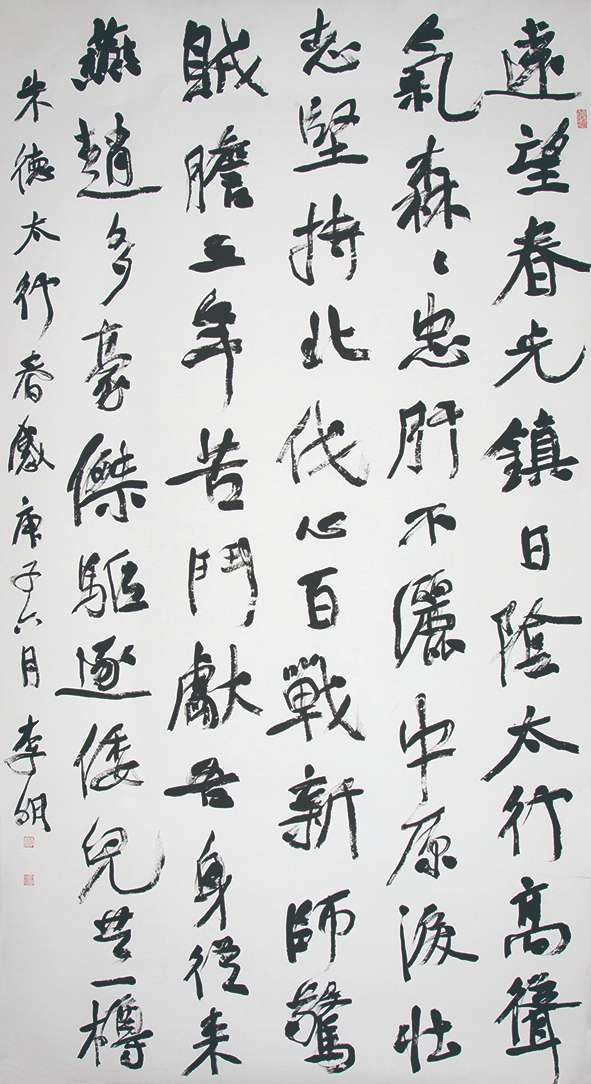 遠望春光鎮日陰太行高聳
氣森〻忠肝不灑中原淚壯
志堅持北伐心百戰新師驚
賊膽三年苦鬥獻吾身從来
燕趙多豪傑驅逐倭兒共一樽
朱德太行春感庚子六月李明